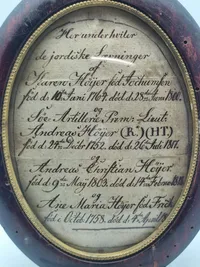 Her underhviler
de jordiske Levninger
af
Maren Höyer fød Jochumsen
fød d. 10de Juni 1764. død d. 28de Juni 1800.
og
Söe Artillerie Premr Lieut:
Andreas Höyer (R.) (HT.)
fød d. 24de Debr 1752. død d. 26de Juli 1817.
Andreas Christian Höyer
fød d. 9de May 1803. død d. 14de Febru
og
Ane Maria Höyer fød Frich
fød Octob 1758. død d. April